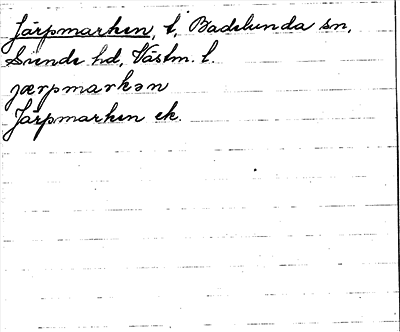 Järpmarken, t, Badelunda sn,
Siende hd, Västm. l.
jærpmarkən
Järpmarken ek.